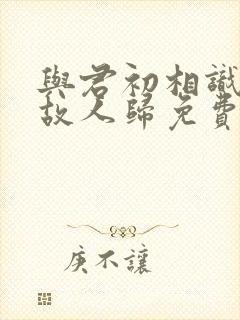 與君初相識
故人歸免費
庚不讓